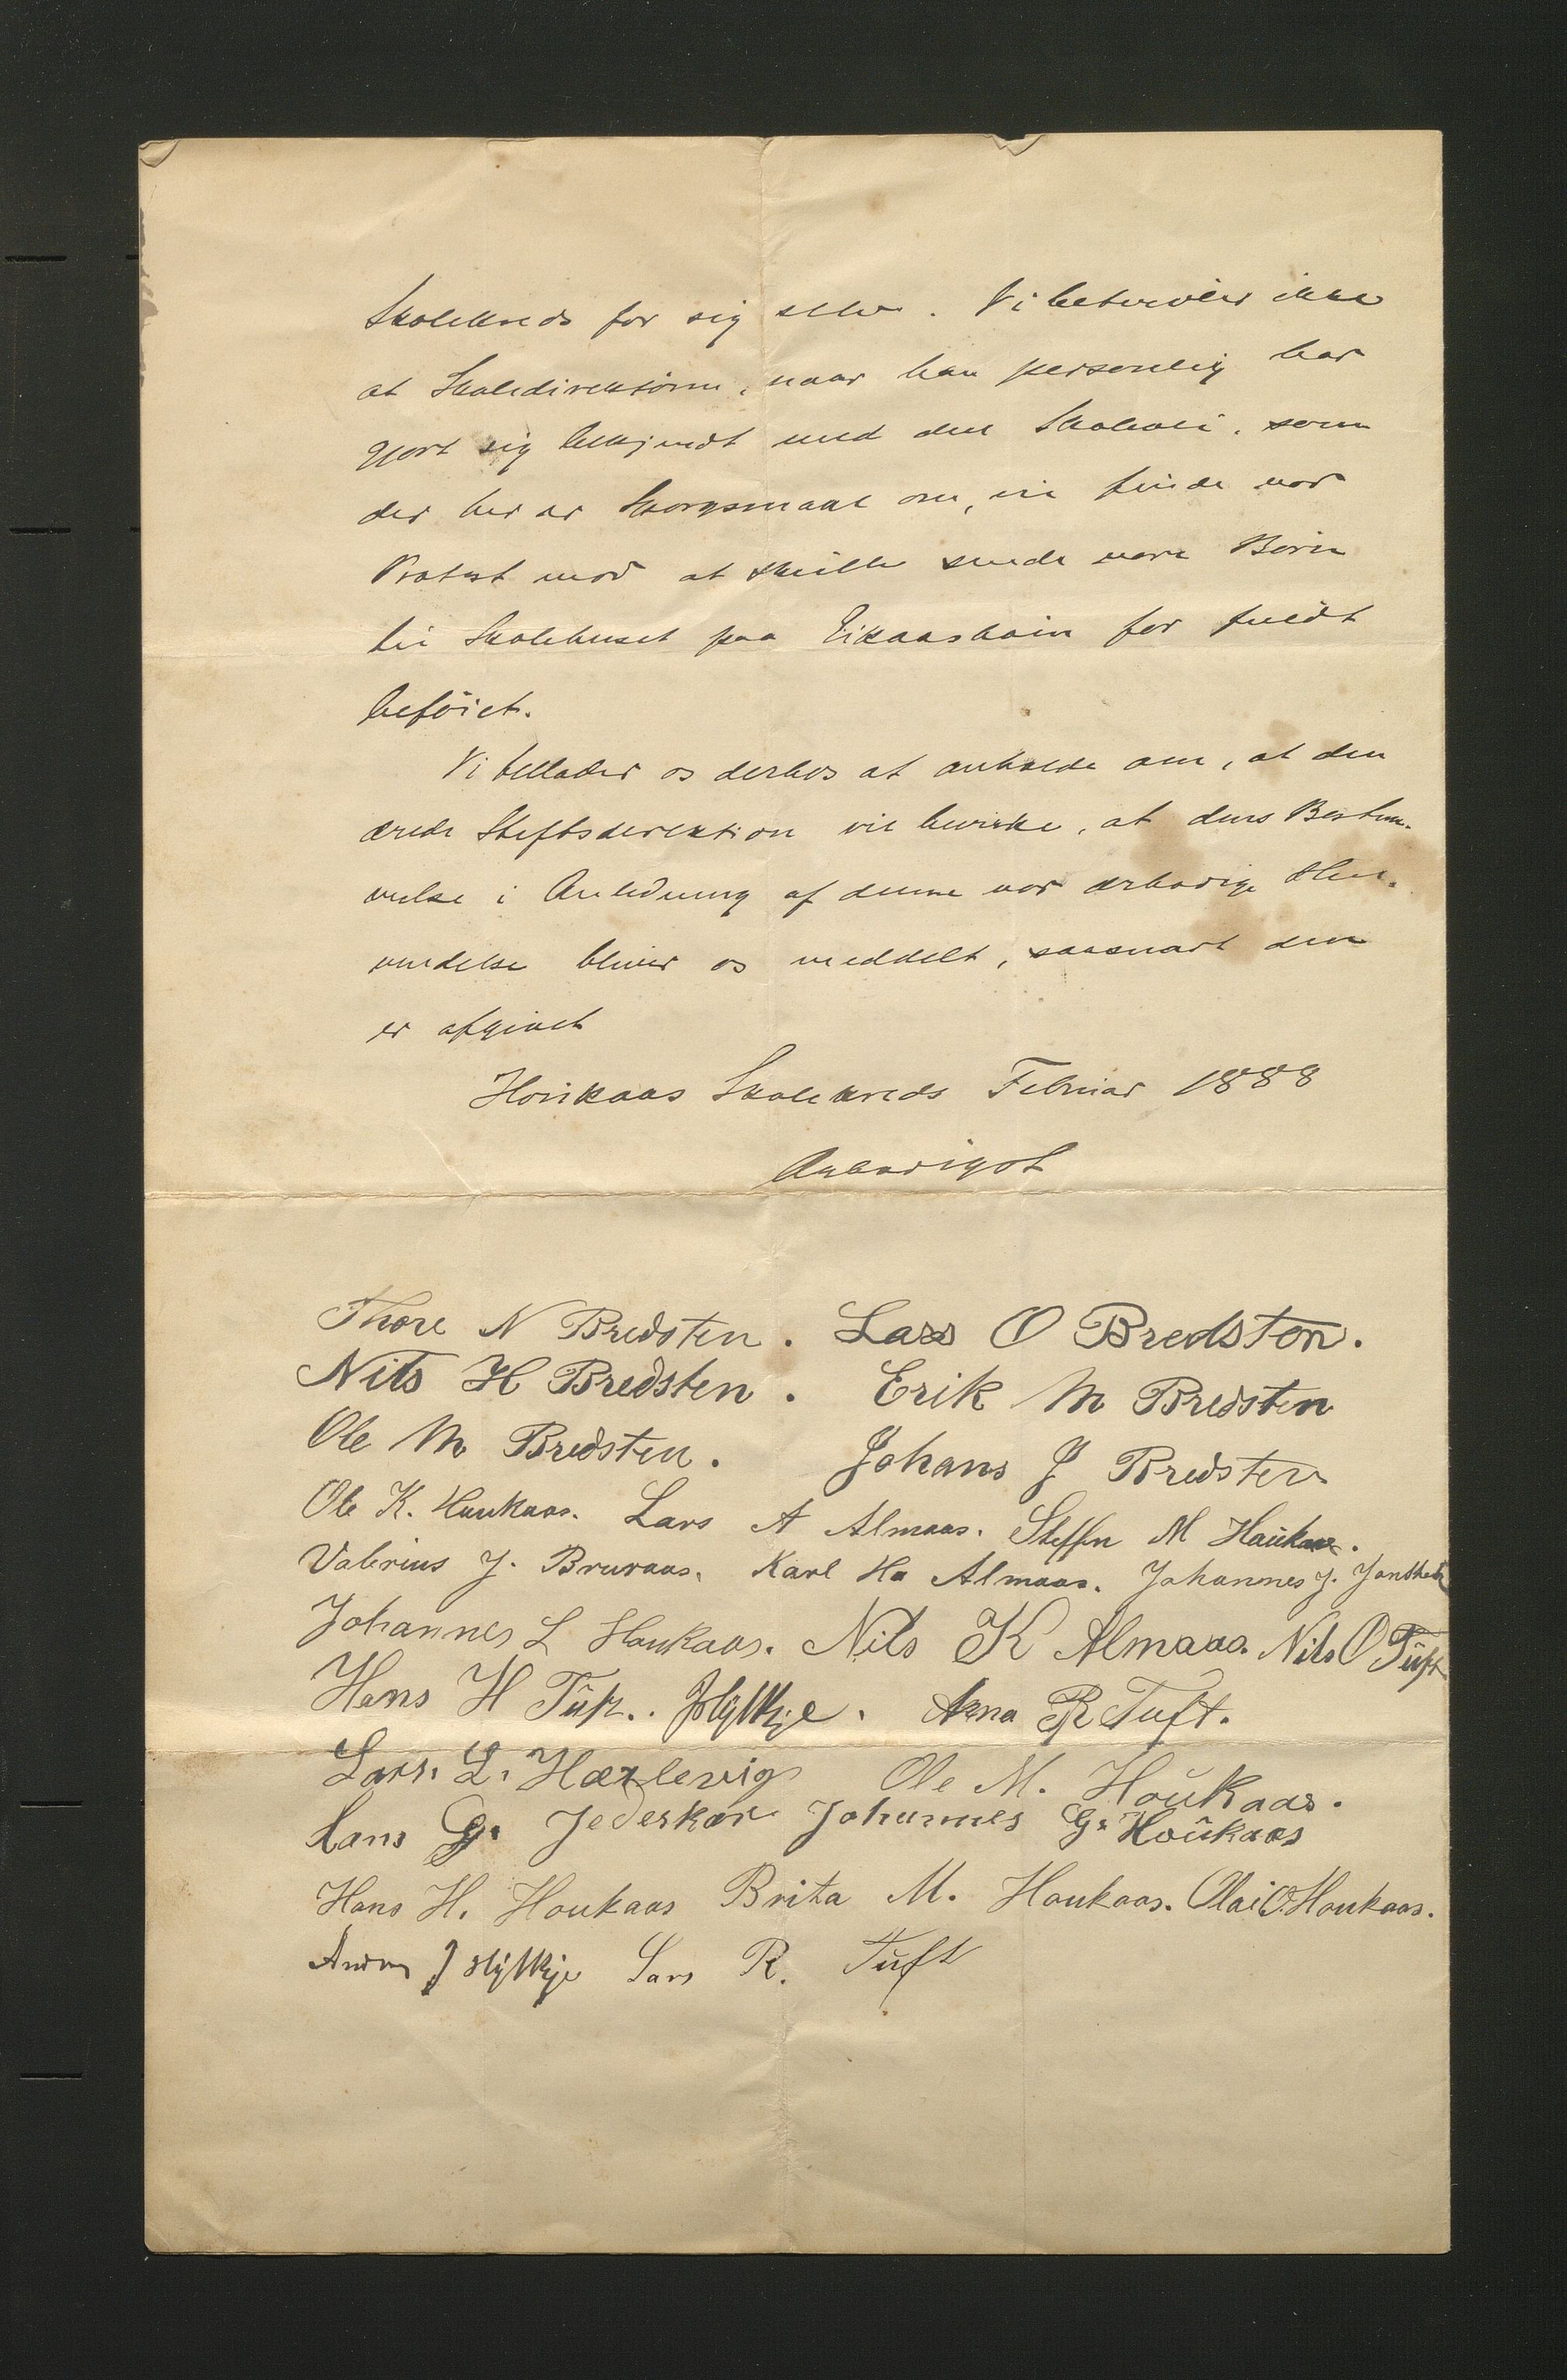 Skolekreds for sig selv. Vi betvivler ikke
at Skoledirektören, naar han personlig har
gjort sig bekjendt med den Skolevei, som
der her er Spörgsmaal om, vil finde vor
Protest mod at skulle sende vore Börn
til Skolehuset paa Eikaashöien for fuldt
beföiet.
Vi tillader os derhos at anholde om, at den
ærede Stiftsdirektion vil bevirke, at dens Bestem-
melse i Anledning af denne vor ærbödige Hen-
vendelse bliver os meddelt, saasnart den
er afgivet
Houkaas Skolekreds Februar 1888
Ærbödigst
Thore N Bredsten. Lars O Bredsten.
Nils H Bredsten. Erik M Bredsten
Ole M Bredsten. Johans J Bredsten
Ole K. Haukaas. Lars A Almaas. Steffen M Haukaas.
Valerius J. Bruraas. Karl Ha Almaas. Johannes J.
Johannes L Haukaas. Nils K Almaas. Nils O Tuft
Hans H Tuft. Hÿlkje. Anna R Tuft.
Lars. L. Hærlevig Ole M. Houkaas.
Hans G. Jederskar Johannes G. Houkaas
Hans H. Houkaas Brita M. Houkaas. Olai O. Houkaas.
Andreas J Hÿlkje Lars R. Tuft